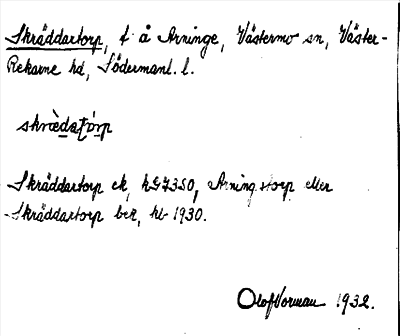 Skräddartorp, t å Arninge, Västermo sn, Väster-
Rekarne hd, Södermanl. l.
skrædatɷrp
Skräddartorp ek, hGJ350, Arningstorp eller
Skräddartorp ber, hb 1930.
Olof Vorman 1932.